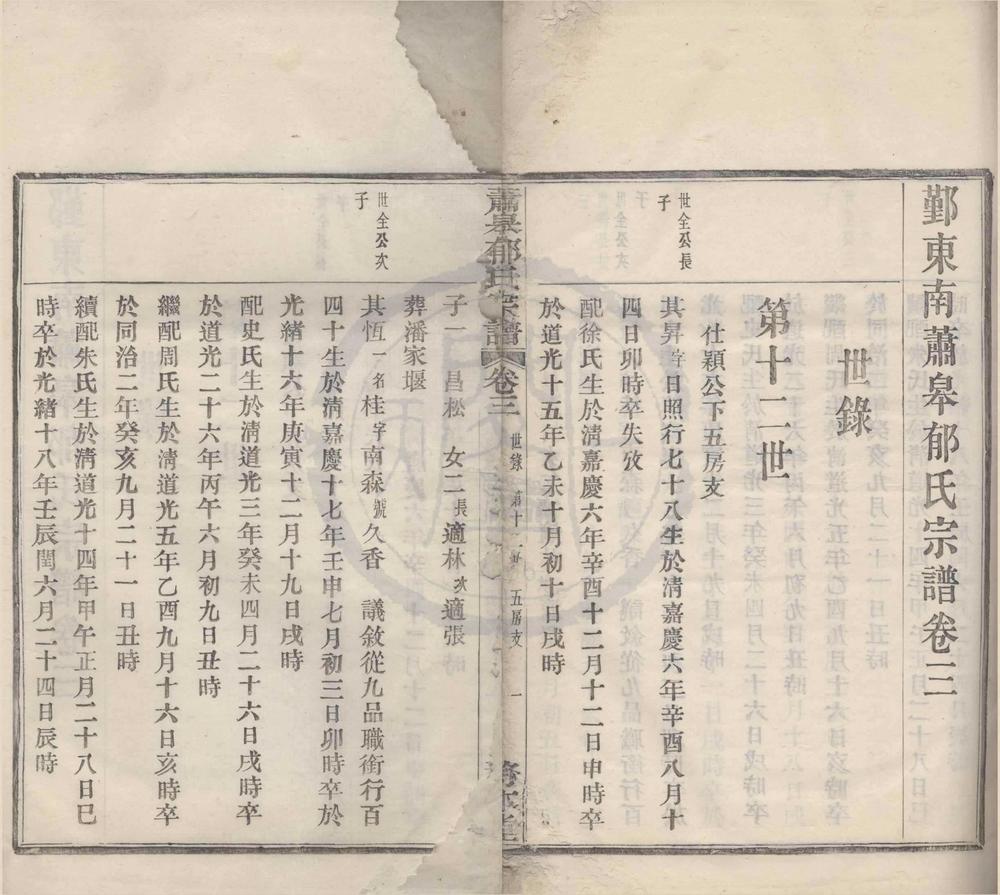 鄞東南蕭皋郁氏宗譜卷三
世錄
第十二世
仕穎公下五房支
世全公長
子
其昇字日照行七十八生於淸嘉慶六年辛酉八月十
四日卯時卒失攷
配徐氏生於淸嘉慶六年辛酉十二月十二日申時卒
於道光十五年乙未十月初十日戌時
蕭皋郁氏宗譜 卷三 世錄 第十二世 五房支 一
子一 昌松 女二長適林次適張
葬潘家堰
世全公次
子
其恆一名桂字南森號久香 議敘從九品職銜行百
四十生於淸嘉慶十七年壬申七月初三日卯時卒於
光緒十六年庚寅十二月十九日戌時
配史氏生於淸道光三年癸未四月二十六日戌時卒
於道光二十六年丙午六月初九日丑時
繼配周氏生於淸道光五年乙酉九月十六日亥時卒
於同治二年癸亥九月二十一日丑時
續配朱氏生於淸道光十四年甲午正月二十八日巳
時卒於光緒十八年壬辰閏六月二十四日辰時